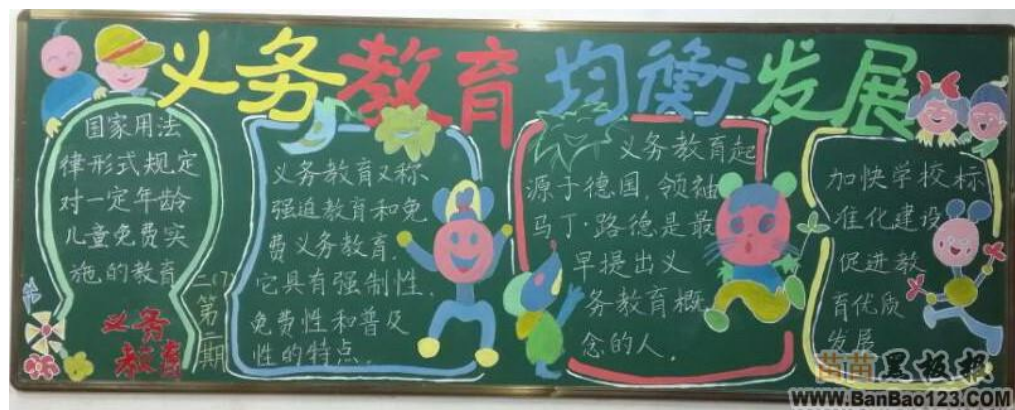 义务教育 均衡发展
国家用法
律形式规定
对一定年龄
儿童免费实
施的教育
义务
教育
二(7)
第二期
义务教育又称
强迫教育和免
费义务教育.
它具有强制性,
免费性和普及
性的特点.
义务教育起
源于德国,领袖
马丁·路德是最
早提出义
务教育概
念的人.
加快学校标
准化建设
促进教
育优质
发展
苗苗黑板报
www.BanBao123.COM